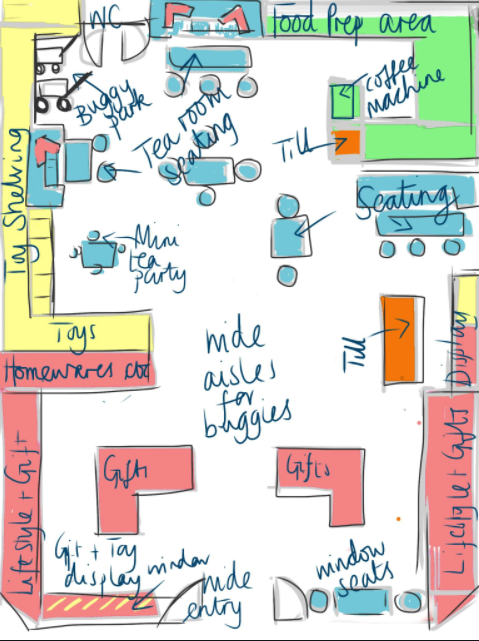 WC
Food Prep area
Buggy
park
Tea room
seating
coffee
machine
Till
Seating
Toy Shelving
Mini
tea
party
Toys
Homewares
wide
aisles
for
buggies
Till
Display
Lifestyle + Gift
Gifts
Gifts
Lifestyle + Gifts
Gift + Toy
display window
wide
entry
window
seats